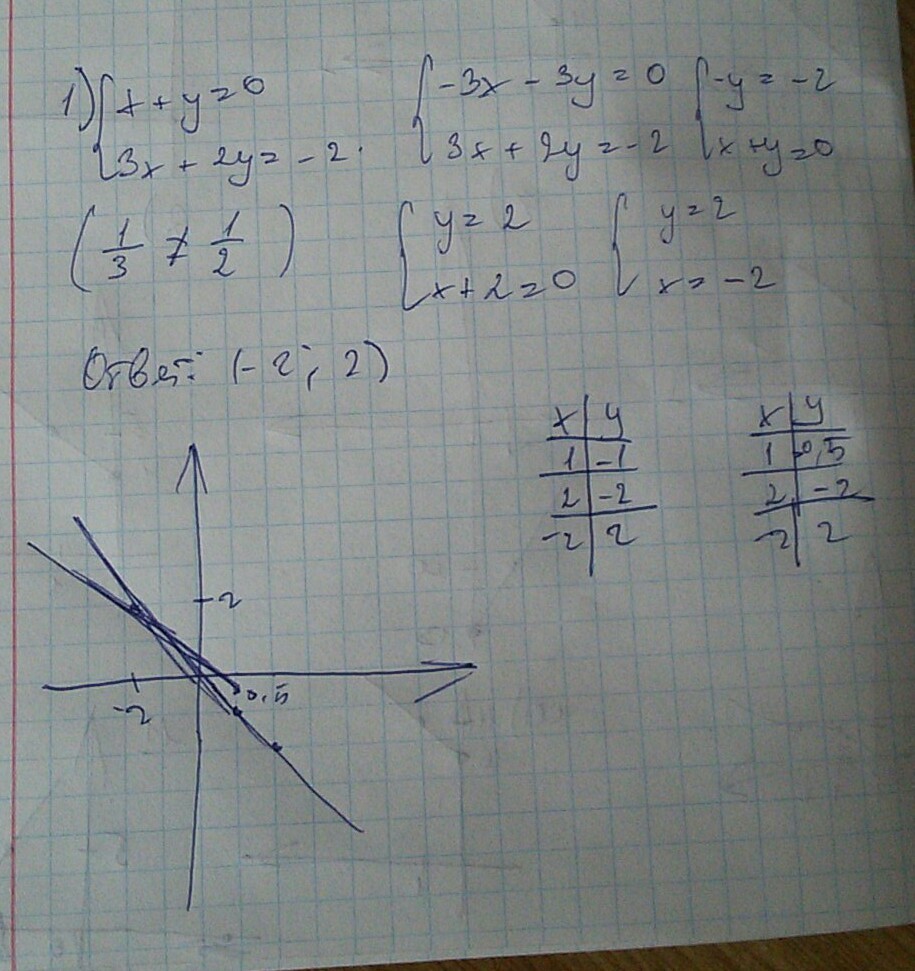 1) { x + y = 0
3x + 2y = -2.
{ -3x - 3y = 0
3x + 2y = -2
{ -y = -2
x + y = 0
( 1/3 ≠ 1/2 )
{ y = 2
x + 2 = 0
{ y = 2
x = -2
Ответ: (-2; 2)
x | y
1 | -1
2 | -2
-2 | 2
x | y
1 | -0,5
2 | -2
-2 | 2
2
-2
0,5